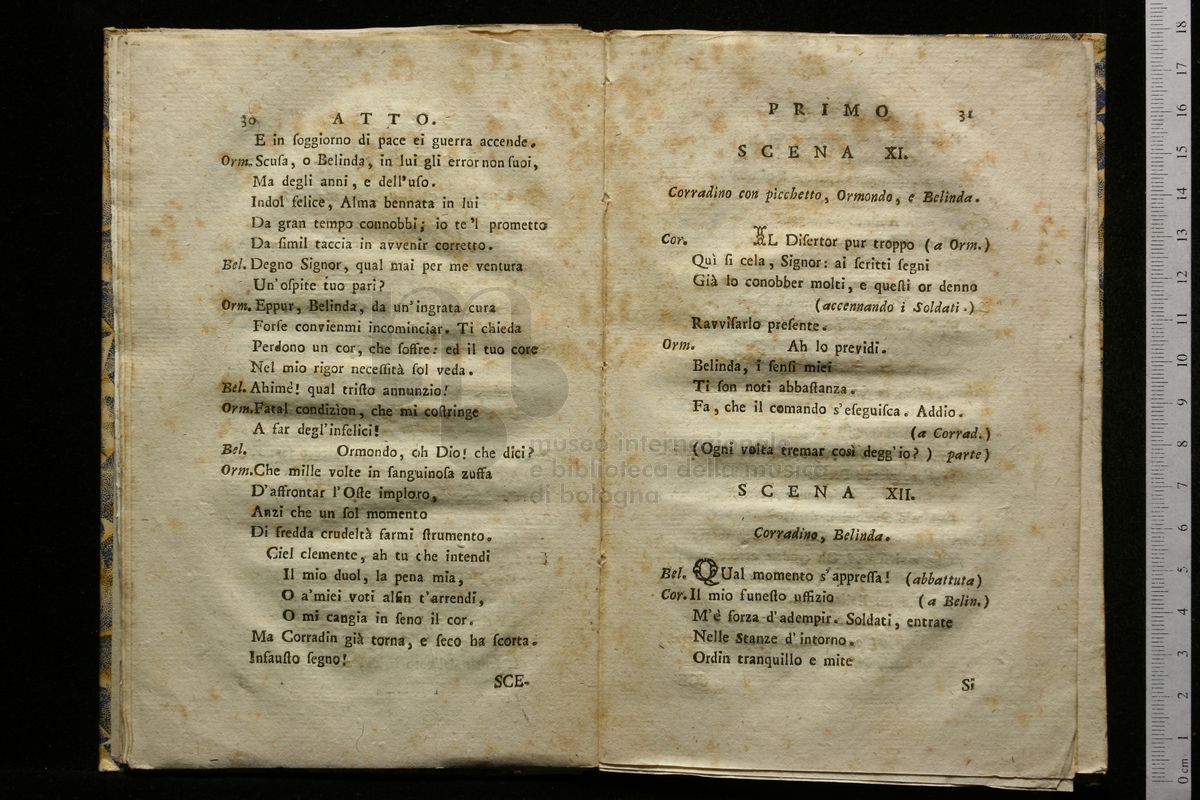 30 ATTO.
E in ſoggiorno di pace ei guerra accende.
Orm. Scuſa, o Belinda, in lui gli error non ſuoi,
Ma degli anni, e dell'uſo.
Indol felice, Alma bennata in lui
Da gran tempo connobbi; io te 'l prometto
Da ſimil taccia in avvenir corretto.
Bel. Degno Signor, qual mai per me ventura
Un'oſpite tuo pari?
Orm. Eppur, Belinda, da un'ingrata cura
Forſe convienmi incominciar. Ti chieda
Perdono un cor, che ſoffre: ed il tuo core
Nel mio rigor neceſſità ſol veda.
Bel. Ahimè! qual triſto annunzio!
Orm. Fatal condizion, che mi coſtringe
A far degl'infelici!
Bel. Ormondo, oh Dio! che dici?
Orm. Che mille volte in ſanguinoſa zuffa
D'affrontar l'Oſte imploro,
Anzi che un ſol momento
Di fredda crudeltà farmi ſtrumento.
Ciel clemente, ah tu che intendi
Il mio duol, la pena mia,
O a'miei voti alfin t'arrendi,
O mi cangia in ſeno il cor.
Ma Corradin già torna, e ſeco ha ſcorta.
Infauſto ſegno!
SCE-
PRIMO 31
SCENA XI.
Corradino con picchetto, Ormondo, e Belinda.
Cor. IL Diſertor pur troppo (a Orm.)
Quì ſi cela, Signor: ai ſcritti ſegni
Già lo conobber molti, e queſti or denno
(accennando i Soldati.)
Ravviſarlo preſente.
Orm. Ah lo previdi.
Belinda, i ſenſi miei
Ti ſon noti abbaſtanza.
Fa, che il comando s'eſeguiſca. Addio.
(a Corrad.)
(Ogni volta tremar così degg'io?) parte)
SCENA XII.
Corradino, Belinda.
Bel. QUal momento s'appreſſa! (abbattuta)
Cor. Il mio funeſto uffizio (a Belin.)
M'è forza d'adempir. Soldati, entrate
Nelle Stanze d'intorno.
Ordin tranquillo e mite
Si
museo internazionale
e biblioteca della musica
di bologna
0 cm 1 2 3 4 5 6 7 8 9 10 11 12 13 14 15 16 17 18